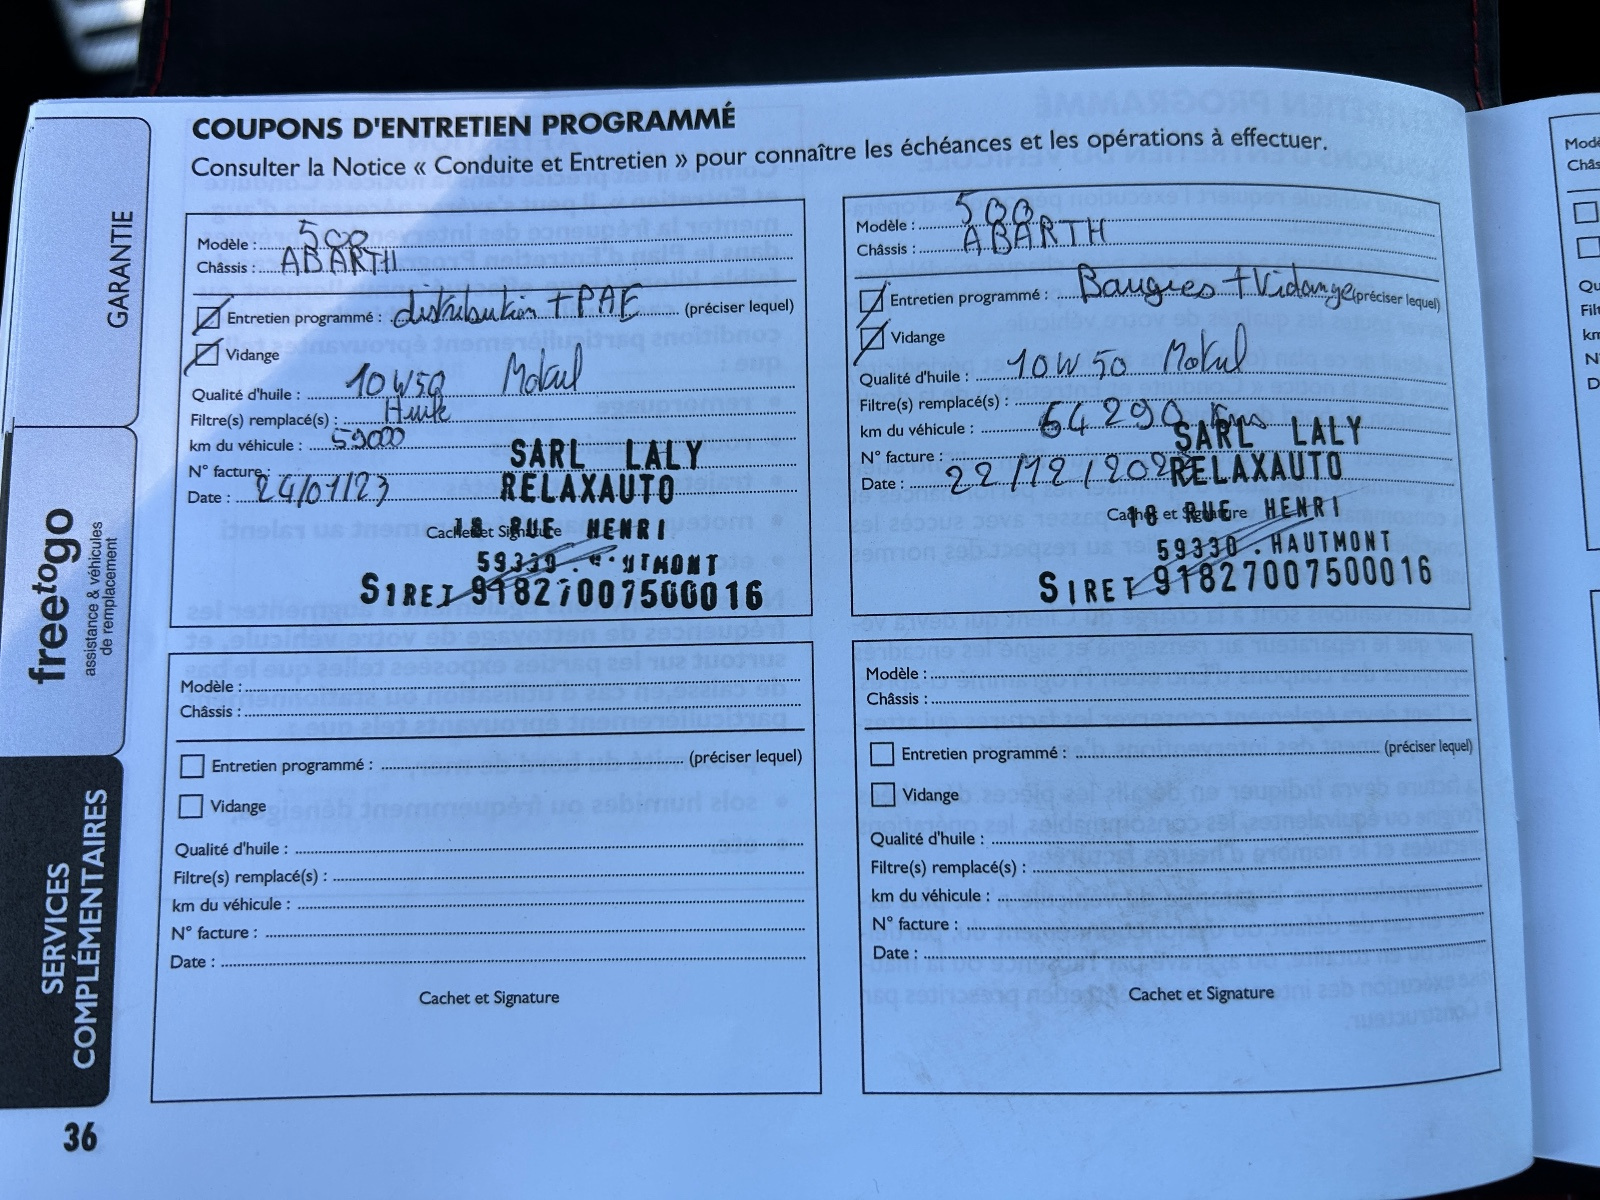 COUPONS D'ENTRETIEN PROGRAMMÉ
Consulter la Notice « Conduite et Entretien » pour connaître les échéances et les opérations à effectuer.
GARANTIE
freetogo
assistance & véhicules
de remplacement
SERVICES
COMPLÉMENTAIRES
36
Modèle : 500
Châssis : ABARTH
Entretien programmé : distribution + PAE (préciser lequel)
Vidange
Qualité d'huile : 10W50 Motul
Filtre(s) remplacé(s) : Huile
km du véhicule : 59000
N° facture :
Date : 24/01/23
Cachet et Signature
SARL LALY
RELAXAUTO
18 RUE HENRI
59330 .
SIRET 91827007500016
Modèle : 500
Châssis : ABARTH
Entretien programmé : Bougies + Vidange (préciser lequel)
Vidange
Qualité d'huile : 10W50 Motul
Filtre(s) remplacé(s) :
km du véhicule : 64290 Kms
N° facture :
Date : 22/12/202
Cachet et Signature
SARL LALY
RELAXAUTO
18 RUE HENRI
59330 . HAUTMONT
SIRET 91827007500016
Modèle :
Châssis :
Entretien programmé : (préciser lequel)
Vidange
Qualité d'huile :
Filtre(s) remplacé(s) :
km du véhicule :
N° facture :
Date :
Cachet et Signature
Modèle :
Châssis :
Entretien programmé : (préciser lequel)
Vidange
Qualité d'huile :
Filtre(s) remplacé(s) :
km du véhicule :
N° facture :
Date :
Cachet et Signature